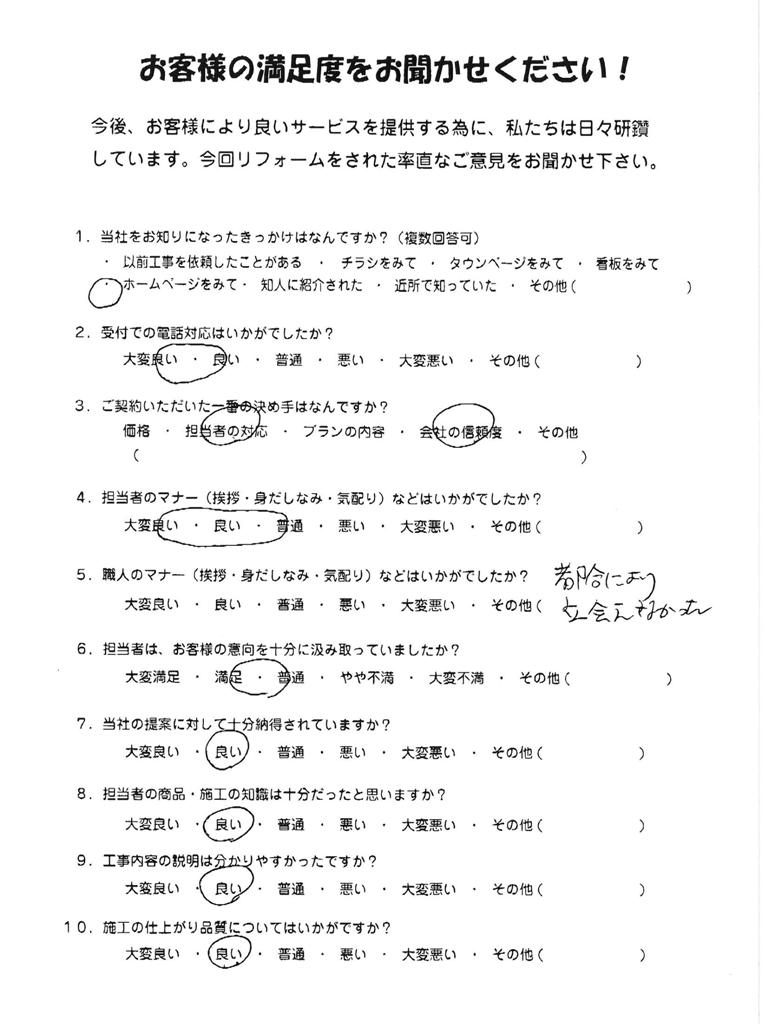 お客様の満足度をお聞かせください！
今後、お客様により良いサービスを提供する為に、私たちは日々研鑽
しています。今回リフォームをされた率直なご意見をお聞かせ下さい。
１．当社をお知りになったきっかけはなんですか？（複数回答可）
・ 以前工事を依頼したことがある ・ チラシをみて ・ タウンページをみて ・ 看板をみて
・ ホームページをみて・ 知人に紹介された ・ 近所で知っていた ・ その他（ ）
２．受付での電話対応はいかがでしたか？
大変良い ・ 良い ・ 普通 ・ 悪い ・ 大変悪い ・ その他（ ）
３．ご契約いただいた一番の決め手はなんですか？
価格 ・ 担当者の対応 ・ プランの内容 ・ 会社の信頼度 ・ その他
（ ）
４．担当者のマナー（挨拶・身だしなみ・気配り）などはいかがでしたか？
大変良い ・ 良い ・ 普通 ・ 悪い ・ 大変悪い ・ その他（ ）
５．職人のマナー（挨拶・身だしなみ・気配り）などはいかがでしたか？ 都合により
大変良い ・ 良い ・ 普通 ・ 悪い ・ 大変悪い ・ その他（ 立会えなかった
６．担当者は、お客様の意向を十分に汲み取っていましたか？
大変満足 ・ 満足 ・ 普通 ・ やや不満 ・ 大変不満 ・ その他（ ）
７．当社の提案に対して十分納得されていますか？
大変良い ・ 良い ・ 普通 ・ 悪い ・ 大変悪い ・ その他（ ）
８．担当者の商品・施工の知識は十分だったと思いますか？
大変良い ・ 良い ・ 普通 ・ 悪い ・ 大変悪い ・ その他（ ）
９．工事内容の説明は分かりやすかったですか？
大変良い ・ 良い ・ 普通 ・ 悪い ・ 大変悪い ・ その他（ ）
１０．施工の仕上がり品質についてはいかがですか？
大変良い ・ 良い ・ 普通 ・ 悪い ・ 大変悪い ・ その他（ ）